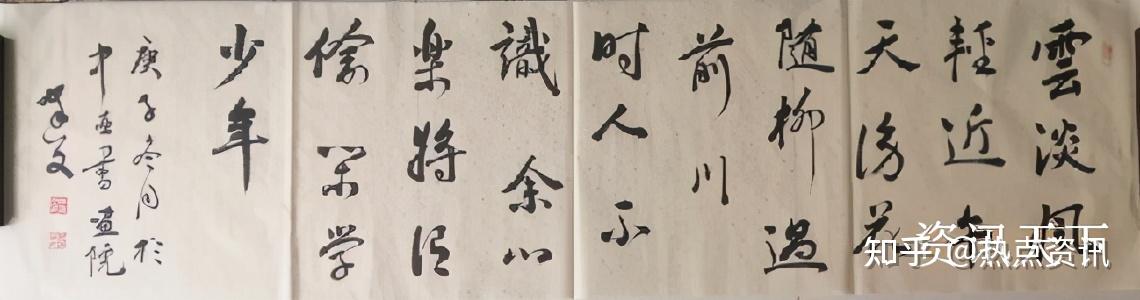 雲淡風
輕近午
天傍花
随柳過
前川
时人不
識余心
楽将謂
偷閑学
少年
庚子冬月於
中書畫院
资讯天下
知乎 @热点资讯